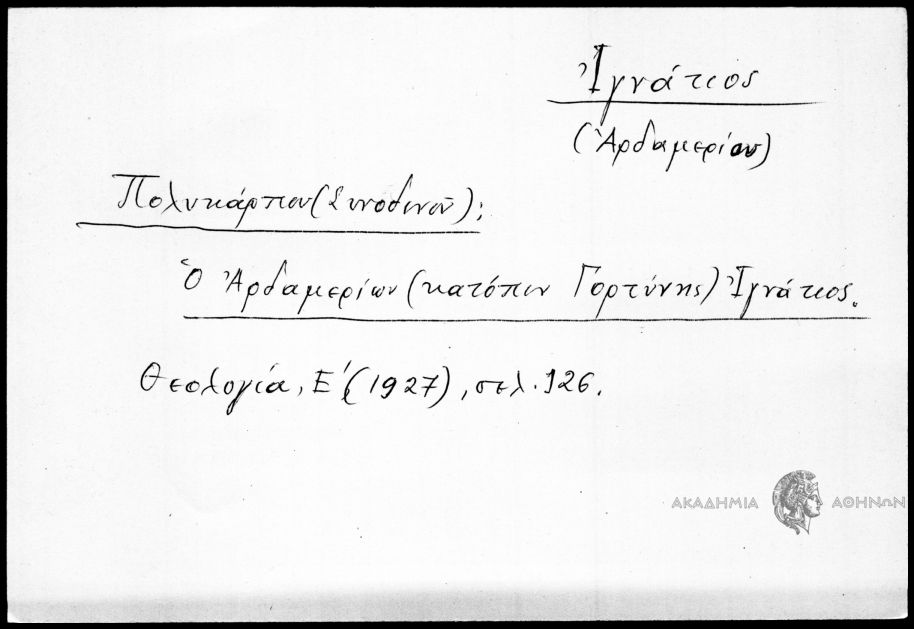 Ἰγνάτιος
(Ἀρδαμερίου)
Πολυκάρπου (Συνοδινοῦ):
Ὁ Ἀρδαμερίων (κατόπιν Γορτύνης) Ἰγνάτιος.
Θεολογία, Ε΄ (1927), σελ. 126.
ΑΚΑΔΗΜΙΑ ΑΘΗΝΩΝ